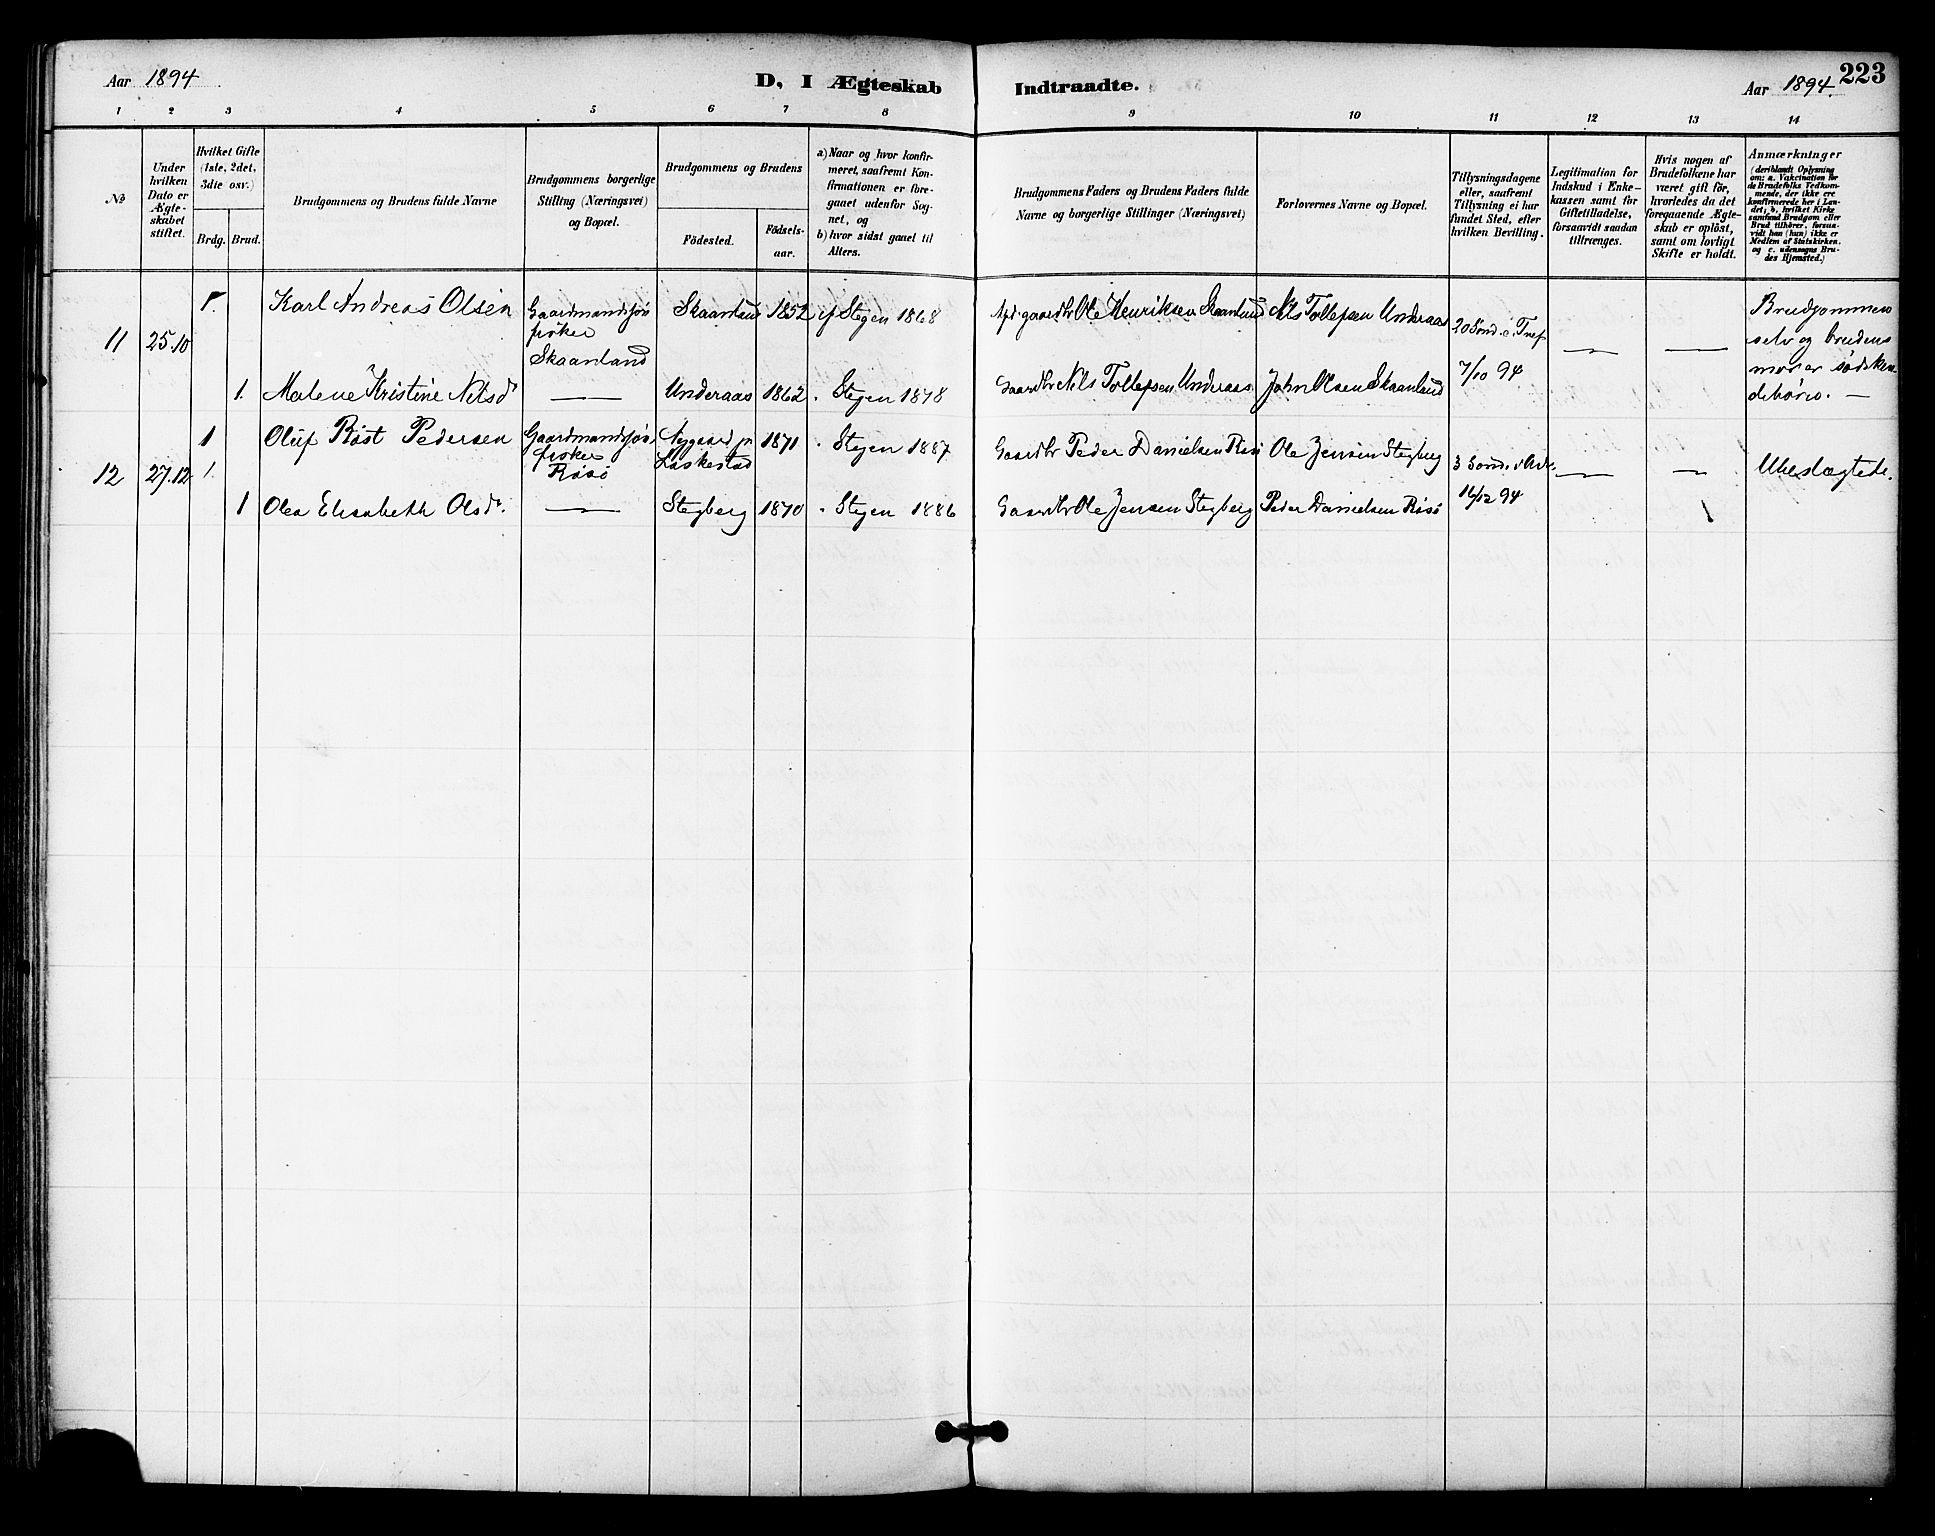 Aar 1894
D, I Ægteskab Indtraadte.
Aar 1894.
223
1 2 3 4 5 6 7 8 9 10 11 12 13 14
No
Under hvilken Dato er Ægte-skabet stiftet.
Hvilket Gifte (1ste, 2det, 3die osv.)
Brdg. Brud.
Brudgommens og Brudens fulde Navne
Brudgommens borgerlige Stilling (Næringsvei) og Bopæl.
Brudgommens og Brudens
Födested.
Födsels-aar.
a) Naar og hvor konfir-meret, saafremt Kon-firmationen er fore-gaaet udenfor Sog-net, og
b) hvor sidst gaaet til Alters.
Brudgommens Faders og Brudens Faders fulde Navne og borgerlige Stillinger (Næringsvei)
Forlovernes Navne og Bopæl.
Tillysningsdagene eller, saafremt Tillysning ei har fundet Sted, efter hvilken Bevilling.
Legitimation for Indskud i Enke-kassen samt for Giftetilladelse, forsaavidt saadan tiltrænges.
Hvis nogen af Brudefolkene har været gift för, hvorledes da det foregaaende Ægte-skab er oplöst, samt om lovligt Skifte er holdt.
Anmærkninger (deriblandt Oplysning om: a. Vakcination for de Brudefolks Vedkom-mende, der ikke ere konfirmerede her i Lan-det; b. hvilket Kirke-samfund Brudgom eller Brud tilhörer, forsaa-vidt han (hun) ikke er Medlem af Statskirken, og c. udensogns Bru-des Hjemsted.)
11 25.10
1. Karl Andreas Olsen
Gaardmandssøn
fisker
Skaanland
Skaanland 1852 Stegen 1868
gaardbr Ole Henriksen Skaanland
Nils Tollefsen Underaas
20 Sønd. e. Tref
7/10 94
Brudgommen
selv og brudens
mor er sødsken
debørn. —
1. Malene Kristine Nilsd.
— Underaas 1862 Stegen 1878
Gaardbr Nils Tollefsen Underaas
John Olsen Skaanland
12 27.12
1 Oluf Røst Pedersen
Gaardmandssøn
fisker
Røsø
Nygaard pr
Laskestad
1871 Stegen 1887
Gaardbr Peder Danielsen Røsø
Ole Jensen Stegberg
3 Sønd. i Adv.
16/12 94
Ubeslægtede.
1 Olea Elisabeth Olsdr.
— Stegberg 1870 Stegen 1886
Gaardbr Ole Jensen Stegberg
Peder Danielsen Røsø